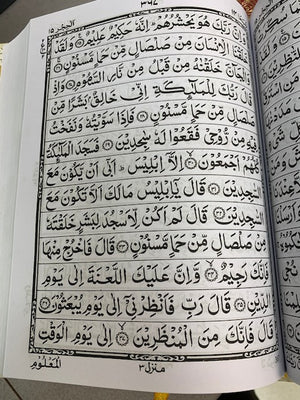 ٣٤٧
الحجر ١٥
رَبَّكَ هُوَ يَحْشُرُهُمْ ؕ اِنَّهٗ حَكِيْمٌ عَلِيْمٌ ﴿٢٥﴾ وَلَقَدْ
الْاِنْسَانَ مِنْ صَلْصَالٍ مِّنْ حَمَاٍ مَّسْنُوْنٍ ﴿٢٦﴾
وَالْجَآنَّ خَلَقْنٰهُ مِنْ قَبْلُ مِنْ نَّارِ السَّمُوْمِ ﴿٢٧﴾ وَاِذْ
قَالَ رَبُّكَ لِلْمَلٰٓئِكَةِ اِنِّيْ خَالِقٌۢ بَشَرًا مِّنْ
صَلْصَالٍ مِّنْ حَمَاٍ مَّسْنُوْنٍ ﴿٢٨﴾ فَاِذَا سَوَّيْتُهٗ وَنَفَخْتُ
فِيْهِ مِنْ رُّوْحِيْ فَقَعُوْا لَهٗ سٰجِدِيْنَ ﴿٢٩﴾ فَسَجَدَ الْمَلٰٓئِكَةُ
كُلُّهُمْ اَجْمَعُوْنَ ﴿٣٠﴾ اِلَّاۤ اِبْلِيْسَ ؕ اَبٰۤى اَنْ يَّكُوْنَ مَعَ
السّٰجِدِيْنَ ﴿٣١﴾ قَالَ يٰۤاِبْلِيْسُ مَا لَكَ اَلَّا تَكُوْنَ مَعَ
السّٰجِدِيْنَ ﴿٣٢﴾ قَالَ لَمْ اَكُنْ لِّاَسْجُدَ لِبَشَرٍ خَلَقْتَهٗ
مِنْ صَلْصَالٍ مِّنْ حَمَاٍ مَّسْنُوْنٍ ﴿٣٣﴾ قَالَ فَاخْرُجْ مِنْهَا
فَاِنَّكَ رَجِيْمٌ ﴿٣٤﴾ وَّاِنَّ عَلَيْكَ اللَّعْنَةَ اِلٰى يَوْمِ
الدِّيْنِ ﴿٣٥﴾ قَالَ رَبِّ فَاَنْظِرْنِيْۤ اِلٰى يَوْمِ يُبْعَثُوْنَ ﴿٣٦﴾
قَالَ فَاِنَّكَ مِنَ الْمُنْظَرِيْنَ ﴿٣٧﴾ اِلٰى يَوْمِ الْوَقْتِ
الْمَعْلُوْمِ
منزل ٣